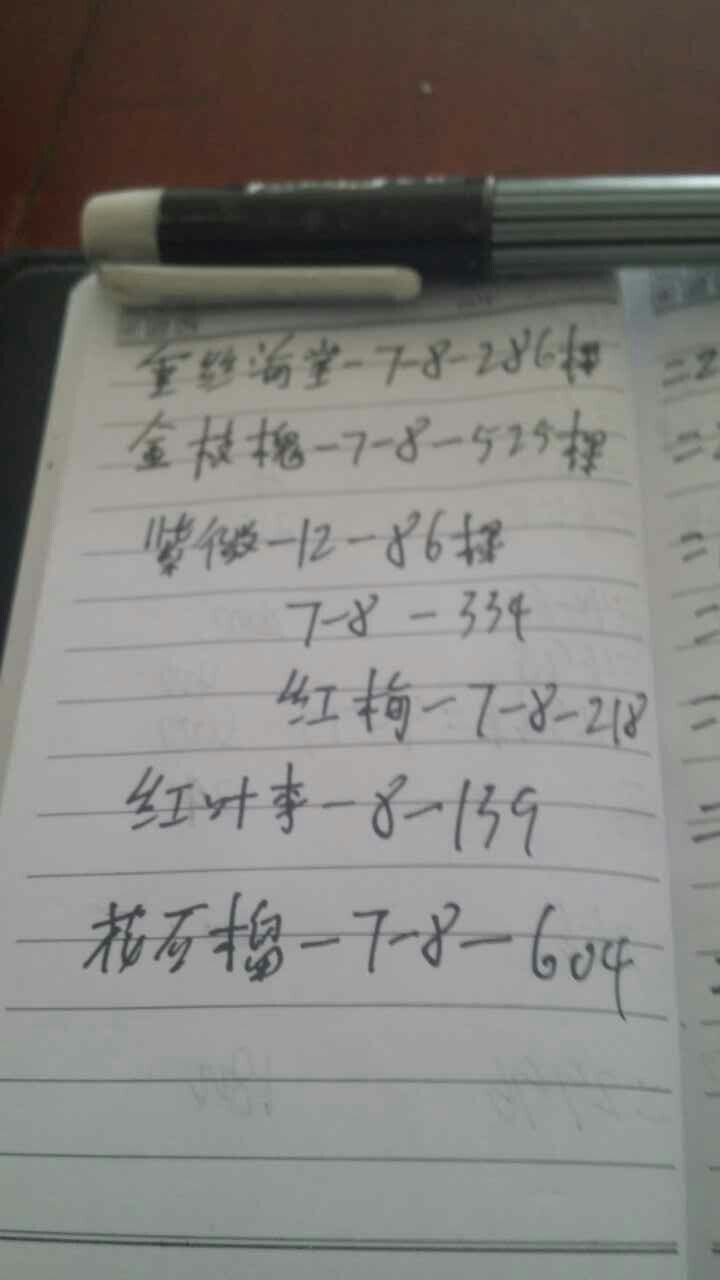 金丝海堂-7-8-286棵
金枝槐-7-8-525棵
紫薇-12-86棵
7-8-334
红梅-7-8-218
红叶李-8-139
花石榴-7-8-604